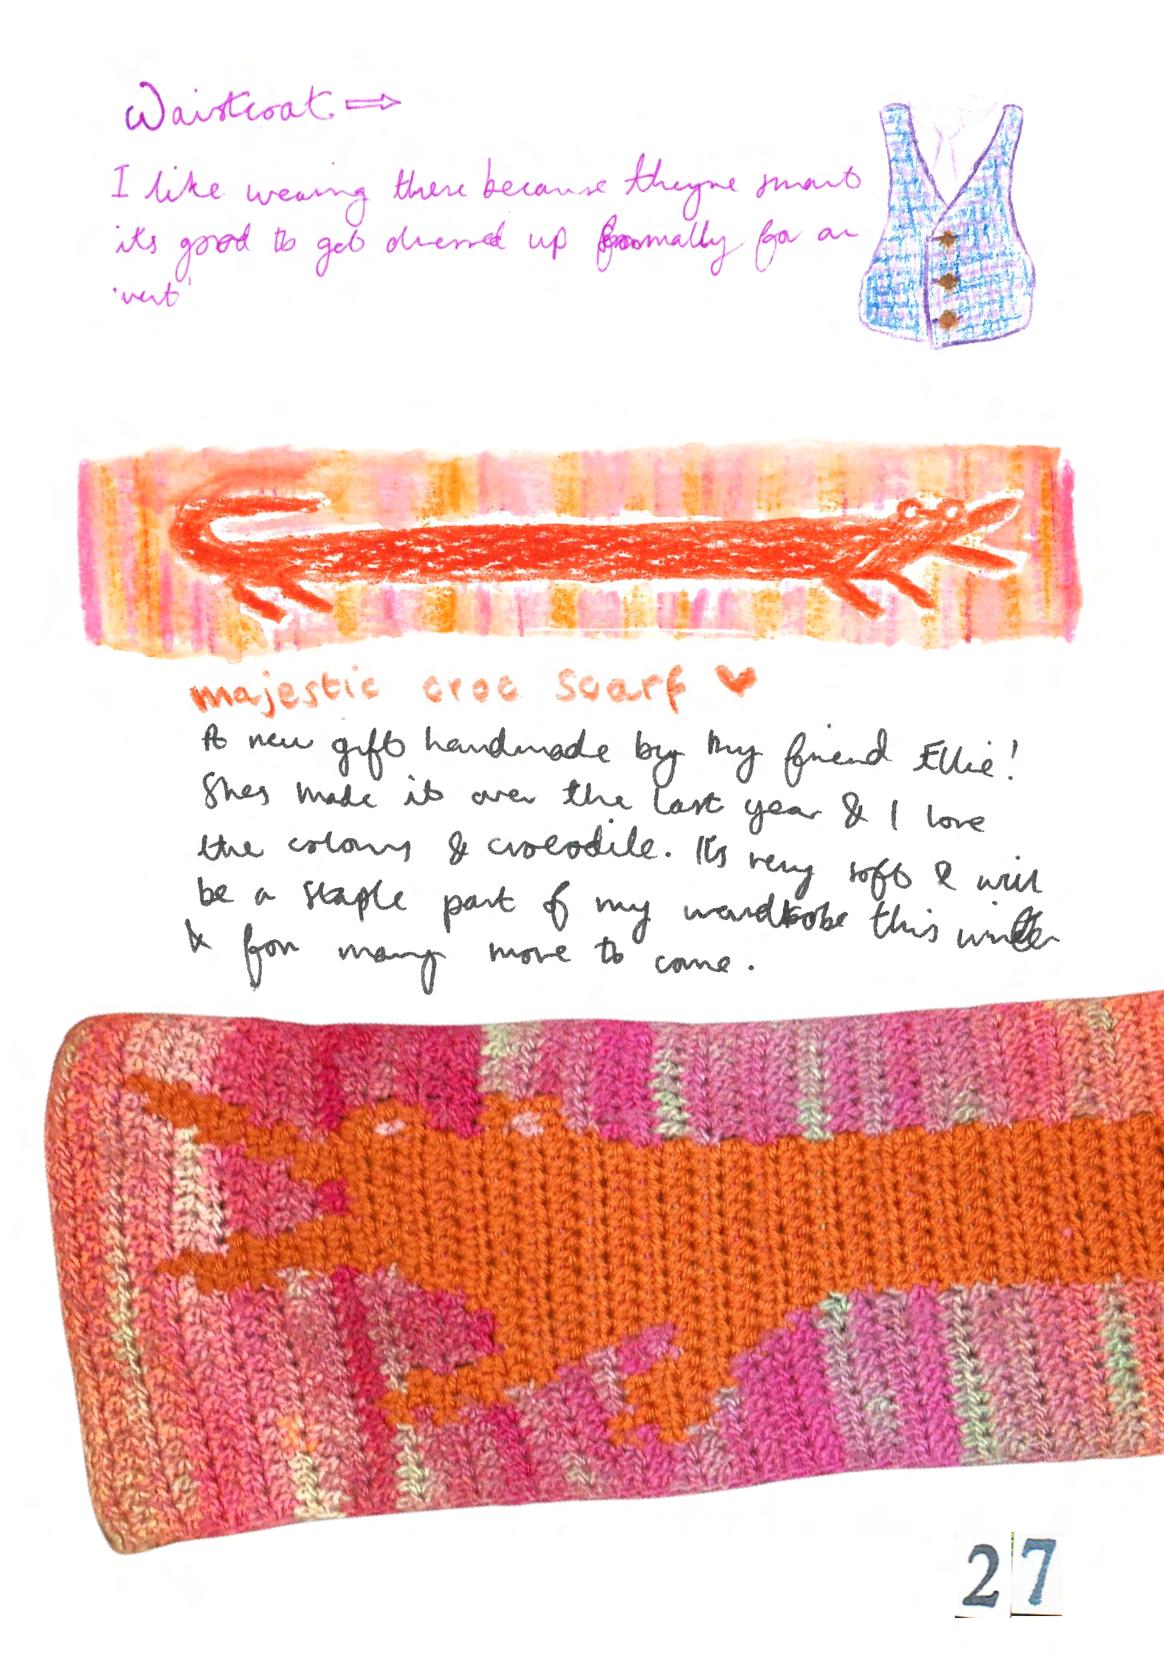 Waistcoat. ⇒
I like wearing these because theyre smart
its good to get dressed up formally for an
'vent'
majestic croc scarf ♥
A new gift handmade by my friend Ellie!
Shes made it over the last year & I love
the colours & crocodile. It's very soft & will
be a staple part of my wardrobe this winter
& for many more to come.
27